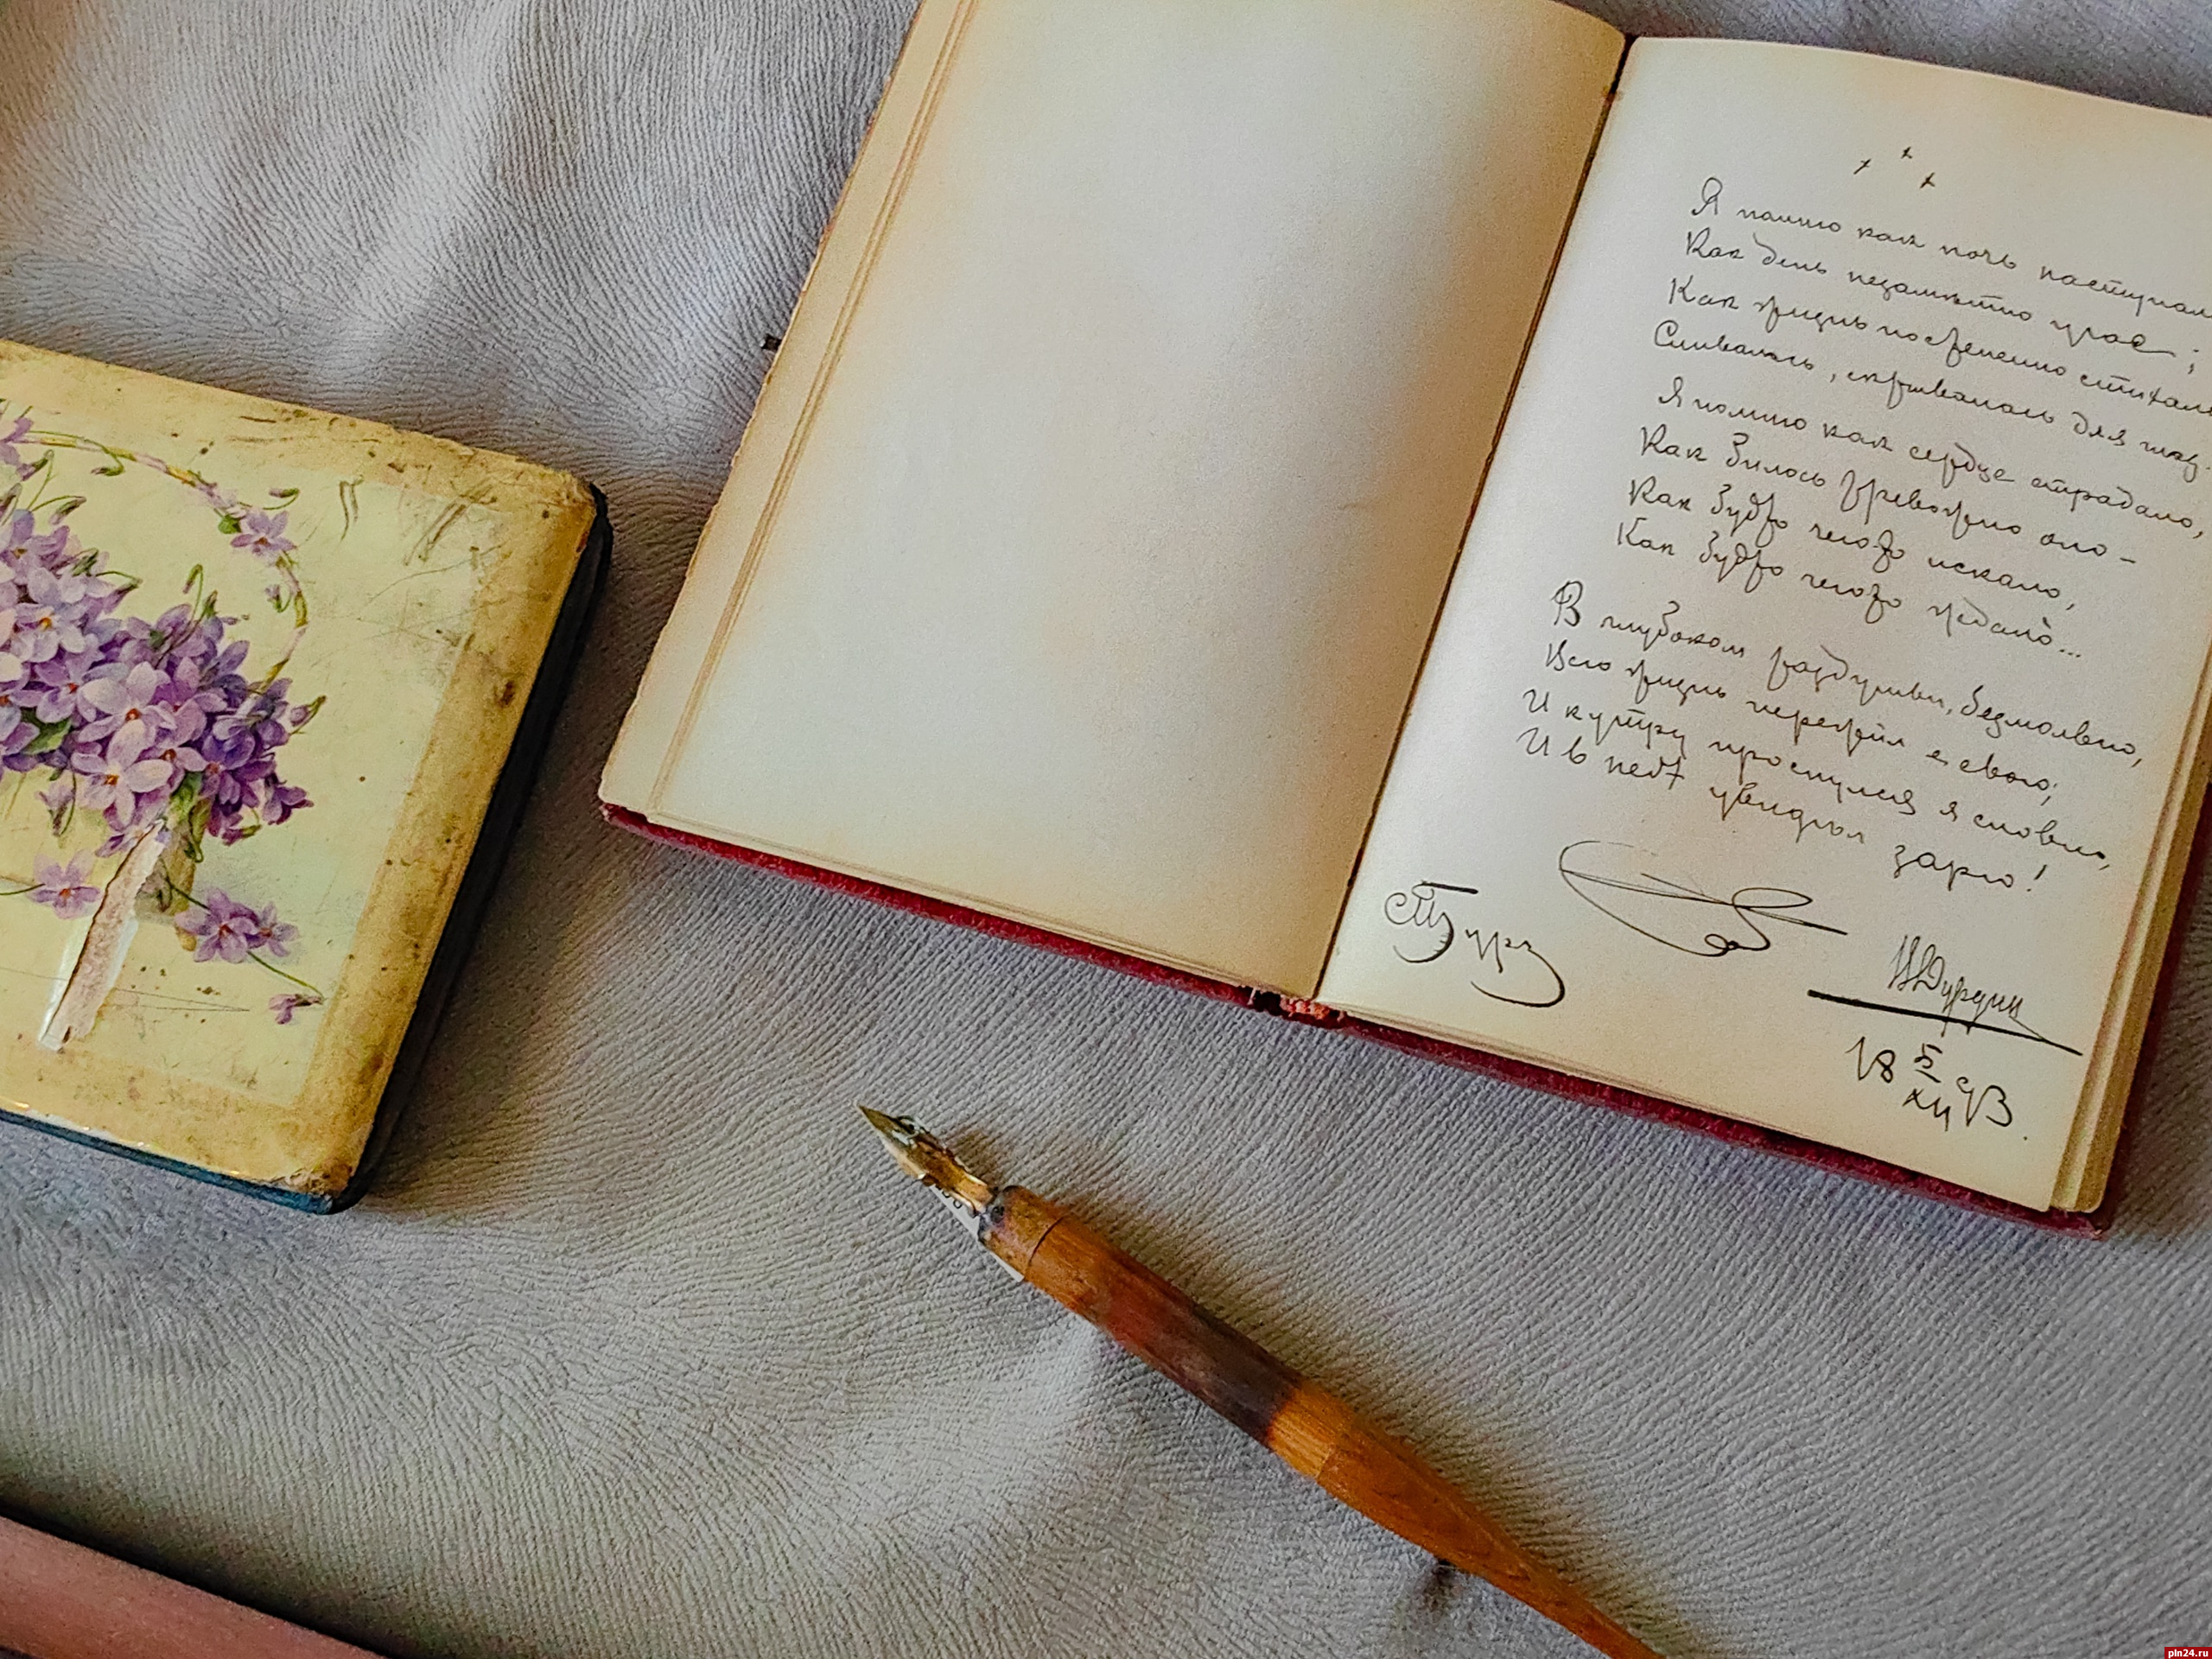 Я помню как ночь наступал
Как день незамѣтно угас;
Как жизнь постепенно стихал
Сливалась, скрывалась для
Я помню как сердце страдало,
Как билось тревожно оно –
Как будто чего то искало,
Как будто чего то ждало...
В глубоком раздумьи, безмолвно,
Всю жизнь пережил я свою;
И к утру проснулся я словно,
И в небѣ увидѣл зарю!
С.П.бургъ
Н Дурдин
18 5/XII 93.
pln24.ru